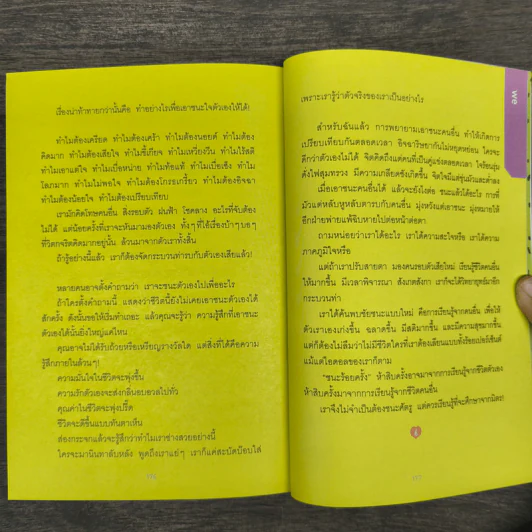 เรื่องน่าท้าทายกว่านั้นคือ ทำอย่างไรเพื่อเอาชนะใจตัวเองให้ได้!
ทำไมต้องเครียด ทำไมต้องเศร้า ทำไมต้องนอยด์ ทำไมต้อง
คิดมาก ทำไมต้องเสียใจ ทำไมขี้เกียจ ทำไมเหวี่ยงวีน ทำไมไร้สติ
ทำไมเอาแต่ใจ ทำไมเบื่อหน่าย ทำไมท้อแท้ ทำไมเบื่อเซ็ง ทำไม
โลภมาก ทำไมไม่พอใจ ทำไมต้องโกรธเกรี้ยว ทำไมต้องอิจฉา
ทำไมต้องน้อยใจ ทำไมต้องเปรียบเทียบ
เรามักคิดโทษคนอื่น สิ่งรอบตัว ฝนฟ้า โชคลาง อะไรที่จับต้อง
ไม่ได้ แต่น้อยครั้งที่เราจะหันมามองตัวเอง ทั้งๆ ที่ไอ้เรื่องบ้าๆ บอๆ
ที่วิตกจริตคิดมากอยู่นั้น ล้วนมาจากตัวเราทั้งสิ้น
ถ้ารู้อย่างนี้แล้ว เราก็ต้องจัดกระบวนท่ารบกับตัวเองเสียแล้ว!
หลายคนอาจตั้งคำถามว่า เราจะชนะตัวเองไปเพื่ออะไร
ถ้าใครตั้งคำถามนี้ แสดงว่าชีวิตนี้ยังไม่เคยเอาชนะตัวเองได้
สักครั้ง ดังนั้นขอให้เริ่มทำเถอะ แล้วคุณจะรู้ว่า ความรู้สึกที่เอาชนะ
ตัวเองได้นั้นยิ่งใหญ่แค่ไหน
คุณอาจไม่ได้รับถ้วยหรือเหรียญรางวัลใด แต่สิ่งที่ได้คือความ
รู้สึกภายในล้วนๆ!
ความมั่นใจในชีวิตจะพุ่งขึ้น
ความรักตัวเองจะส่งกลิ่นอบอวลไปทั่ว
คุณค่าในชีวิตจะพุ่งปรี๊ด
ชีวิตจะดีขึ้นแบบทันตาเห็น
ส่องกระจกแล้วจะรู้สึกว่าทำไมเราช่างสวยอย่างนี้
ใครจะมานินทาลับหลัง พูดถึงเราแย่ๆ เราก็แค่สะบัดบ๊อบใส่
we
เพราะเรารู้ว่าตัวจริงของเราเป็นอย่างไร
สำหรับฉันแล้ว การพยายามเอาชนะคนอื่น ทำให้เกิดการ
เปรียบเทียบกันตลอดเวลา อิจฉาริษยากันไม่หยุดหย่อน ใครจะ
ดีกว่าตัวเองไม่ได้ จิตคิดถึงแต่คนที่เป็นคู่แข่งตลอดเวลา ใจร้อนรุ่ม
ดั่งไฟสุมทรวง มีความเกลียดชังเกิดขึ้น จิตใจมีแต่ขุ่นมัวและต่ำลง
เมื่อเอาชนะคนอื่นได้ แล้วจะยังไงต่อ ชนะแล้วได้อะไร การที่
มัวแต่หลับหูหลับตารบกับคนอื่น มุ่งหวังแต่เอาชนะ มุ่งหมายให้
อีกฝ่ายพ่ายแพ้ชิบหายไปต่อหน้าต่อตา
ถามหน่อยว่าเราได้อะไร เราได้ความสะใจหรือ เราได้ความ
ภาคภูมิใจหรือ
แต่ถ้าเราปรับสายตา มองคนรอบตัวเสียใหม่ เรียนรู้ชีวิตคนอื่น
ให้มากขึ้น มีเวลาพิจารณา สังเกตการณ์ เราก็จะได้วิทยายุทธ์มาอีก
กระบวนท่า
เราได้ค้นพบชัยชนะแบบใหม่ คือการเรียนรู้จากคนอื่น เพื่อให้
ตัวเราเองเก่งขึ้น ฉลาดขึ้น มีสติมากขึ้น และมีความสุขมากขึ้น
แต่ก็ต้องไม่ลืมว่าไม่มีชีวิตใครที่เราต้องเลียนแบบทั้งร้อยเปอร์เซ็นต์
แม้แต่ไอดอลของเราก็ตาม
"ชนะร้อยครั้ง" ห้าสิบครั้งอาจมาจากการเรียนรู้จากชีวิตตัวเอง
ห้าสิบครั้งมาจากการเรียนรู้จากชีวิตคนอื่น
เราจึงไม่จำเป็นต้องชนะศัตรู แต่ควรเรียนรู้ที่จะศึกษาจากมิตร!